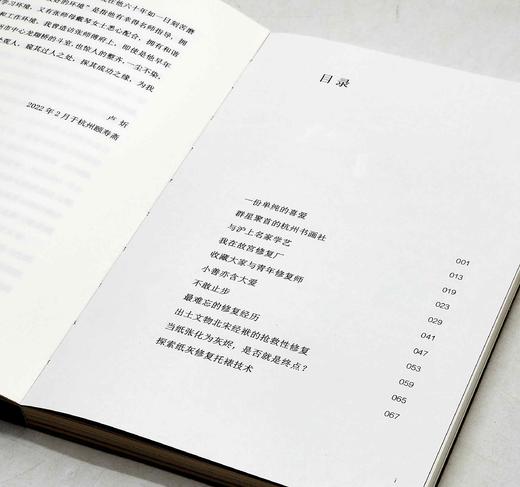 在他六十年如一日刻苦磨
好的环境——是指他有幸得名师指导、拥
学习环境，又有张师母戴琴女士悉心配合，拥有和谐
和工作环境。我曾造访张师傅府上，即使是他早年
州市中心龙翔桥的斗室，也惊人的整齐，一尘不染。
处观人，窥其过人之处，探其成功之缘，为我
卢 炘
2022年2月于杭州颐寿斋
目录
一份单纯的喜爱 001
群星聚首的杭州书画社 013
与沪上名家学艺 019
我在故宫修复厂 023
收藏大家与青年修复师 029
小善亦含大爱 041
不敢止步 047
最难忘的修复经历 053
出土文物北宋经袱的抢救性修复 059
当纸张化为灰烬，是否就是终点？ 065
探索纸灰修复托裱技术 067
i